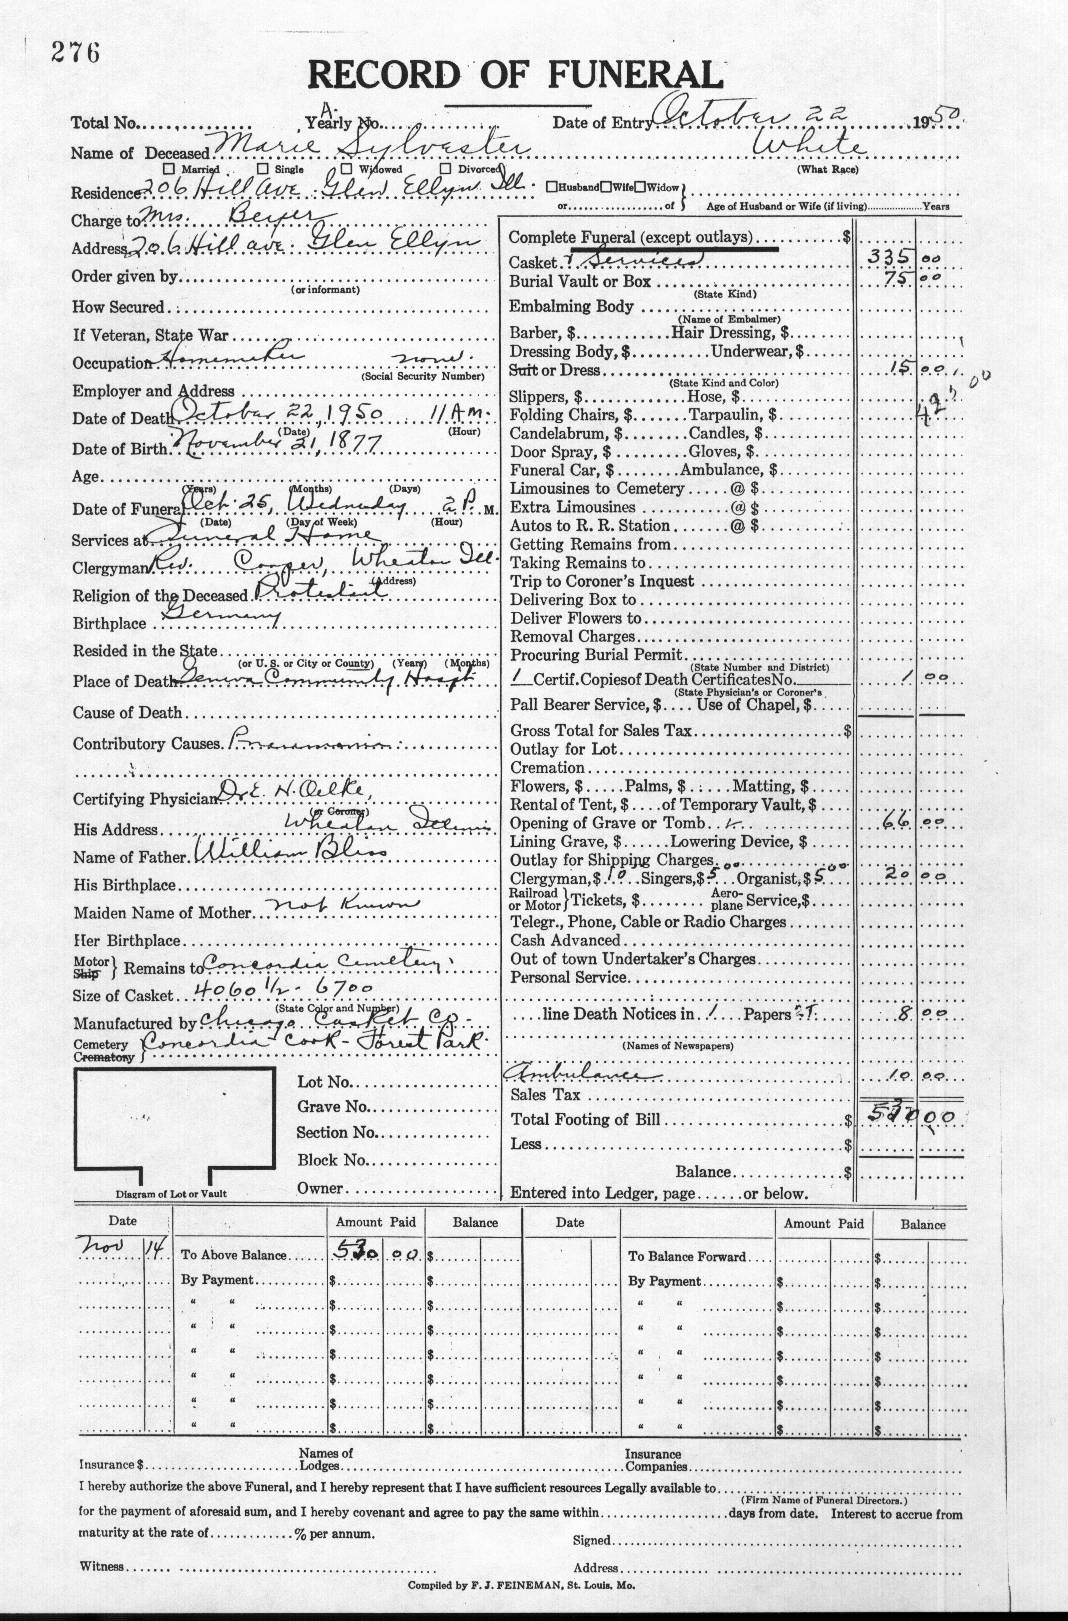 276
RECORD OF FUNERAL
Total No. A. Yearly No. Date of Entry October 22 1950.
Name of Deceased Marie Sylvester White
☐ Married ☐ Single ☐ Widowed ☐ Divorced (What Race)
Residence 206 Hill Ave. Glen Ellyn Ill. ☐Husband☐Wife☐Widow or of } Age of Husband or Wife (if living) Years
Charge to Mrs. Beyer
Address 206 Hill ave. Glen Ellyn
Order given by
(or informant)
How Secured
If Veteran, State War
Occupation Homemaker none.
(Social Security Number)
Employer and Address
Date of Death October 22, 1950 11 A.M.
(Date) (Hour)
Date of Birth November 21, 1877
Age
(Years) (Months) (Days)
Date of Funeral Oct. 25, Wednesday 2 P. M.
(Date) (Day of Week) (Hour)
Services at Funeral Home
Clergyman Rev. Cooper, Wheaton Ill.
(Address)
Religion of the Deceased Protestant
Birthplace Germany
Resided in the State
(or U. S. or City or County) (Years) (Months)
Place of Death Geneva Community Hospt.
Cause of Death
Contributory Causes
Certifying Physician Dr E. H. Oelke,
(or Coroner)
His Address Wheaton Illinois
Name of Father William Bliss
His Birthplace
Maiden Name of Mother not Known
Her Birthplace
Motor Ship } Remains to Concordia Cemetery
Size of Casket 4060 1/2 - 6700
(State Color and Number)
Manufactured by Chicago Casket Co.
Cemetery Crematory } Concordia - Cook - Forest Park
Lot No.
Grave No.
Section No.
Block No.
Owner
Diagram of Lot or Vault
Complete Funeral (except outlays) $
Casket & Services 335 00
Burial Vault or Box 75 00
(State Kind)
Embalming Body
(Name of Embalmer)
Barber, $ Hair Dressing, $
Dressing Body, $ Underwear, $
Suit or Dress 15 00
(State Kind and Color)
Slippers, $ Hose, $
Folding Chairs, $ Tarpaulin, $
425 00
Candelabrum, $ Candles, $
Door Spray, $ Gloves, $
Funeral Car, $ Ambulance, $
Limousines to Cemetery @ $
Extra Limousines @ $
Autos to R. R. Station @ $
Getting Remains from
Taking Remains to
Trip to Coroner's Inquest
Delivering Box to
Deliver Flowers to
Removal Charges
Procuring Burial Permit
(State Number and District)
1 Certif. Copies of Death Certificates No. 1 00
(State Physician's or Coroner's
Pall Bearer Service, $ Use of Chapel, $
Gross Total for Sales Tax $
Outlay for Lot
Cremation
Flowers, $ Palms, $ Matting, $
Rental of Tent, $ of Temporary Vault, $
Opening of Grave or Tomb 66 00
Lining Grave, $ Lowering Device, $
Outlay for Shipping Charges
Clergyman, $ 10 Singers, $ 5 00 Organist, $ 5 00 20 00
Railroad or Motor } Tickets, $ Aero-plane Service, $
Telegr., Phone, Cable or Radio Charges
Cash Advanced
Out of town Undertaker's Charges
Personal Service
line Death Notices in 1 Papers 8 00
(Names of Newspapers)
Ambulance 10 00
Sales Tax
Total Footing of Bill $ 530 00
Less $
Balance $
Entered into Ledger, page or below.
Date Amount Paid Balance Date Amount Paid Balance
Nov 14 To Above Balance 530 00 $ To Balance Forward $
By Payment $ $ By Payment $ $
" " $ $ " " $ $
" " $ $ " " $ $
" " $ $ " " $ $
" " $ $ " " $ $
" " $ $ " " $ $
" " $ $ " " $ $
Insurance $ Names of Lodges Insurance Companies
I hereby authorize the above Funeral, and I hereby represent that I have sufficient resources Legally available to
(Firm Name of Funeral Directors.)
for the payment of aforesaid sum, and I hereby covenant and agree to pay the same within days from date. Interest to accrue from
maturity at the rate of % per annum.
Signed
Witness Address
Compiled by F. J. FEINEMAN, St. Louis, Mo.